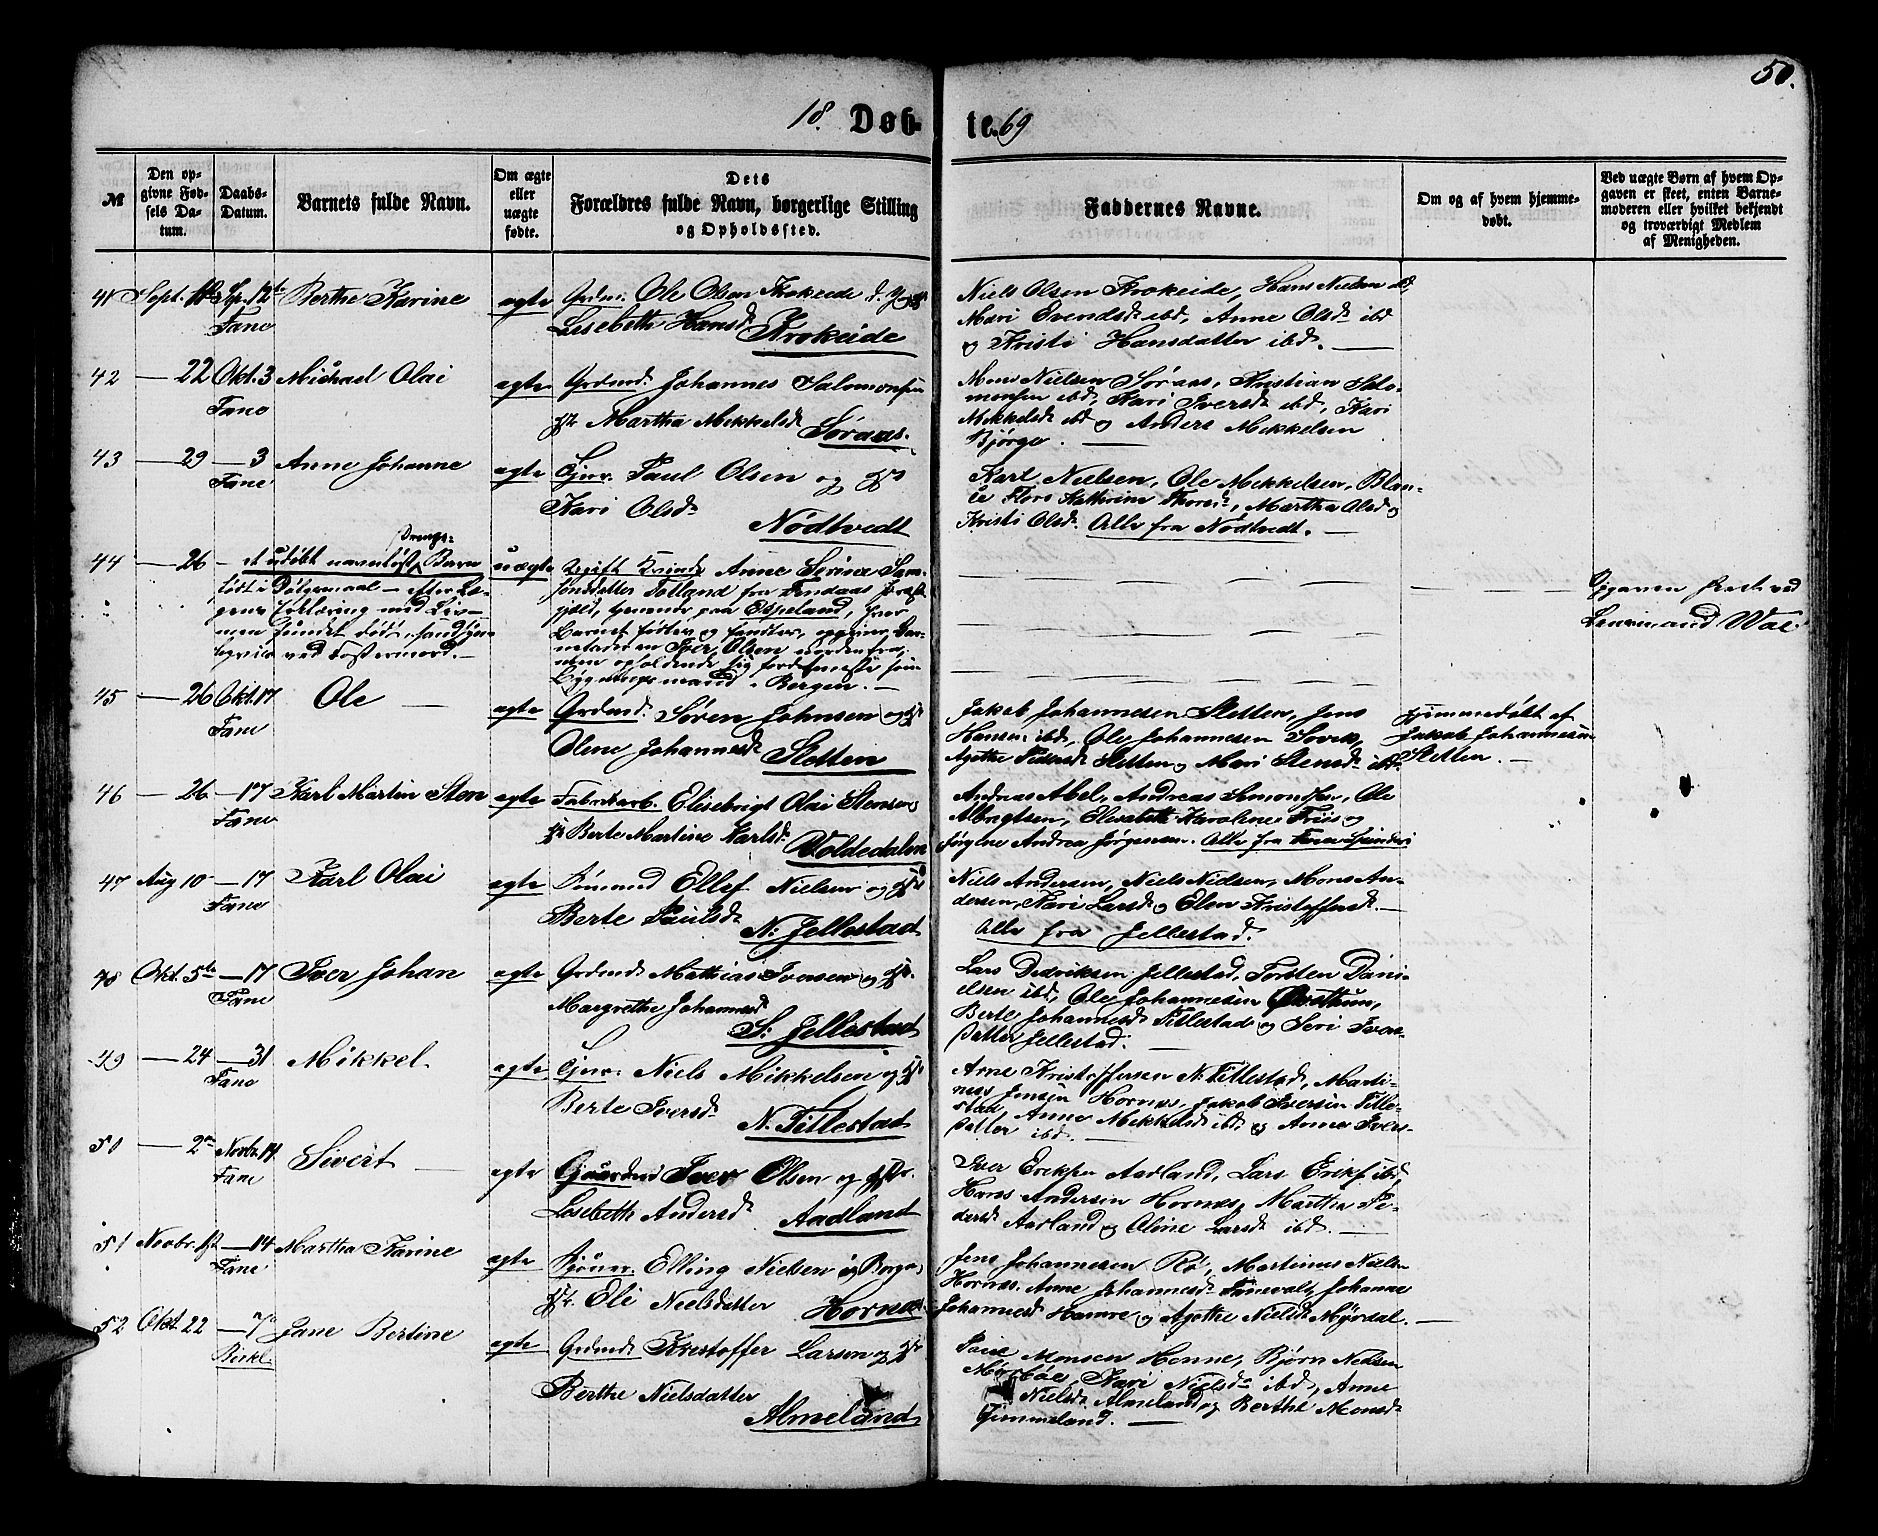 50.
18. Døb- te. 69
№
Den op-
givne Fød-
sels Da-
tum.
Daabs-
Datum.
Barnets fulde Navn.
Om ægte
eller
uægte
fødte.
Dets
Forældres fulde Navn, borgerlige Stilling
og Opholdssted.
Faddernes Navne.
Om og af hvem hjemme-
døbt.
Ved uægte Børn af hvem Op-
gaven er skeet, enten Barne-
moderen eller hvilket bekjendt
og troværdigt Medlem
af Menigheden.
41 Sept. 12te Berthe Karine ægte Grdm. Ole Olsen Krokeide d. y. og
Fane Lisebeth Hansd. Krokeide
Niels Olsen Krokeide, Hans Nielsen ibd,
Mari Evendsd. ibd, Anne Olsd. ibd
og Kristi Hansdatter ibd. —
42 — 22 Okt. 3 Michael Olai ægte Grdmd. Johannes Salomonsen
Fane Martha Mikkelsd. Søraas.
Mons Nielsen Søraas, Kristian Salo-
monsen ibd, Kari Iversd. ibd, Kari
Mikkelsd. ibd og Anders Mikkelsen
Bjørge. —
43 — 29 — 3 Anne Johanne ægte Gjnr. Paul Olsen og
Fane Kari Olsd. Nödtvedt
Karl Nielsen, Ole Mikkelsen, Martha Olsd. og
Kristi Olsd. Alle fra Nödtvedt. —
44 — 26 — et udøbt navnløst Drenge- Barn uægte Ugift Kvinde Anne Serine Sam-
født i Dølgsmaal — efter Læ-
gens Erklæring med Liv —
men fundet dødt,
ved Fostermord. —
sonsdatter fra Lindaas
hjemme paa Espeland, hvor
Barnet fødtes og fandtes, opgiven Bar-
nefader en Iver Olsen nordenfra,
Bergen. —
Opgaven skeet ved
Lensmand Wal
45 — 26 Okt. 17 Ole — ægte Grdmd. Søren Johnsen og
Fane Oline Johannesd. Sletten
Jakob Johannesen Sletten, Jens
Hansen ibd, Ole Johannesen
Agathe Pedersd. Sletten og Mari Stensd. ibd.
Hjemmedøbt af
Jakob Johannesen
Sletten. —
46 — 26 — 17 Karl Martin Sten ægte Fabrikarb. Elisebrigt Olai Stensen
Fane Berte Martine Karlsd. Voldedalen
Andreas Abel, Andreas Simonsen, Ole
Elisabeth Karoline Friis og
Jørgine Andrea Jørgensen. Alle fra
47 Aug 10 — 17 Karl Olai ægte Ellef Nielsen og
Fane Berte Paulsd. N. Jellestad
Niels Andersen, Niels Nielsen, Mons An-
dersen, Kari Larsd. og Elen Kristoffersd. —
Alle fra Jellestad.
48 Okt. 5te — 17 Iver Johan ægte Grdmd. Mathias Iversen og
Fane Margrethe Johannesd. S. Jellestad
Lars Dedriksen Jellestad, Torsten Dani-
elsen ibd, Ole Johannesen
Berte Johannesd. Tillestad og Seri Ivers-
datter Jellestad. —
49 — 24 — 31 Mikkel ægte Gjnr. Niels Mikkelsen og
Fane Berte Iversd. N. Tillestad
Arne Kristoffersen N. Tillestad, Marti-
nus Jensen Hornæs, Jakob Iversen Tille-
stad, Anne Mikkelsd. ibd. og Anna Ivers-
datter ibd. —
50 — 2den Novbr. 14 Sivert — ægte Iver Olsen og
Fane Lisebeth Andersd. Aadland
Iver Eriksen Aadland, Lars Eriks. ibd,
Hans Andersen Hornæs, Martha Pe-
dersd. Aadland og Oline Larsd. ibd. —
51 Novbr. 1st — 14 Martha Karine ægte Elling Nielsen
Fane Eli Nielsdatter Hornæs
Jens Johannesen Rö, Martinus Nielsen
Hornæs. Anne Johannesd. Johanne
Johannesd. Hamre og Agathe Nielsd. Myrdal. —
52 Okt. 22 — 7 Jane Bertine ægte Grdmd. Kristoffer Larsen og
Birkel. Berthe Nielsdatter Almeland
Monsen Henne, Bjørn Nielsen
Kari Nielsd. ibd, Anne
Nielsd. Almeland og Berthe Monsd.
Gimmeland. —